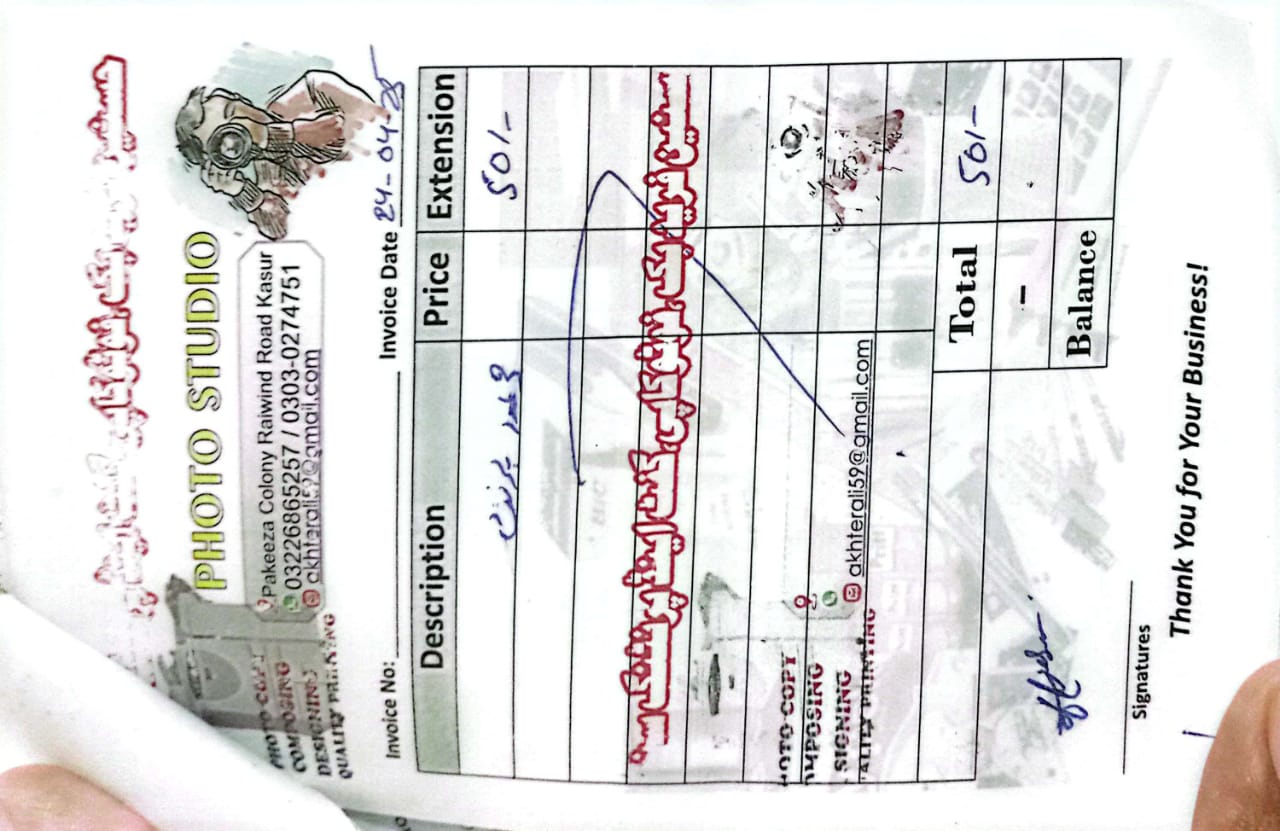 PHOTO STUDIO
Pakeeza Colony Raiwind Road Kasur
03226865257 / 0303-0274751
akhterali59@gmail.com
PHOTO COPY
COMPOSING
DESIGNING
QUALITY PRINTING
Invoice No: Invoice Date 24-04-25
Description Price Extension
پرنٹ 50/-
HOTO COPY
OMPOSING
SIGNING
ALITY PRINTING
akhterali59@gmail.com
Total 50/-
-
Balance
Signatures
Thank You for Your Business!